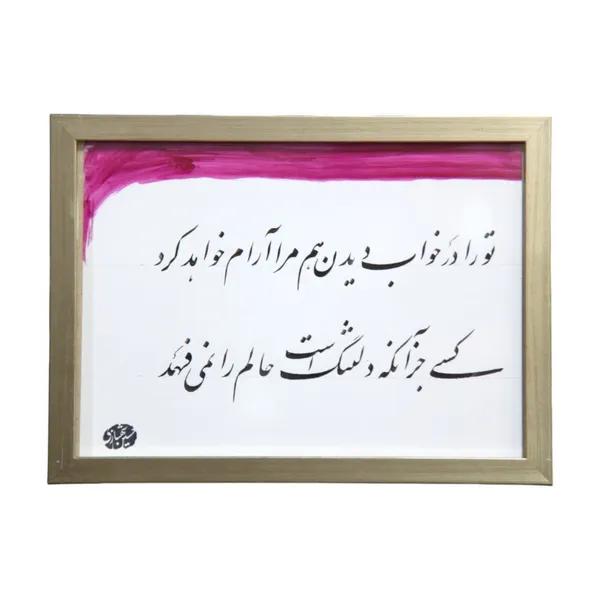 تو را در خواب دیدن هم مرا آرام خواهد کرد
کسی جز آنکه دلتنگ است حالم را نمی فهمد